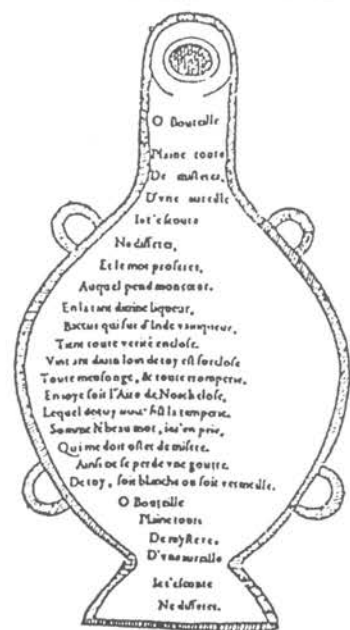 O Bouteille
Plaine toute
De misteres,
D'vne aureille
Ie t'escoute
Ne differes,
Et le mot proferes,
Auquel pend mon cœur.
En la tant diuine liqueur,
Baccus qui fut d'Inde vainqueur,
Tient toute verité enclose.
Vin tant diuin loin de toy est forclose
Toute mensonge, & toute tromperie.
En ioye soit l'Aire de Noach close,
Lequel de toy nous fist la temperie.
Somme le beau mot, ie t'en prie,
Qui me doit oster de misere.
Ainsi ne se perde vne goutte.
De toy, soit blanche ou soit vermeille.
O Bouteille
Plaine toute
De mysteres,
D'vne aureille
Ie t'escoute
Ne differes.